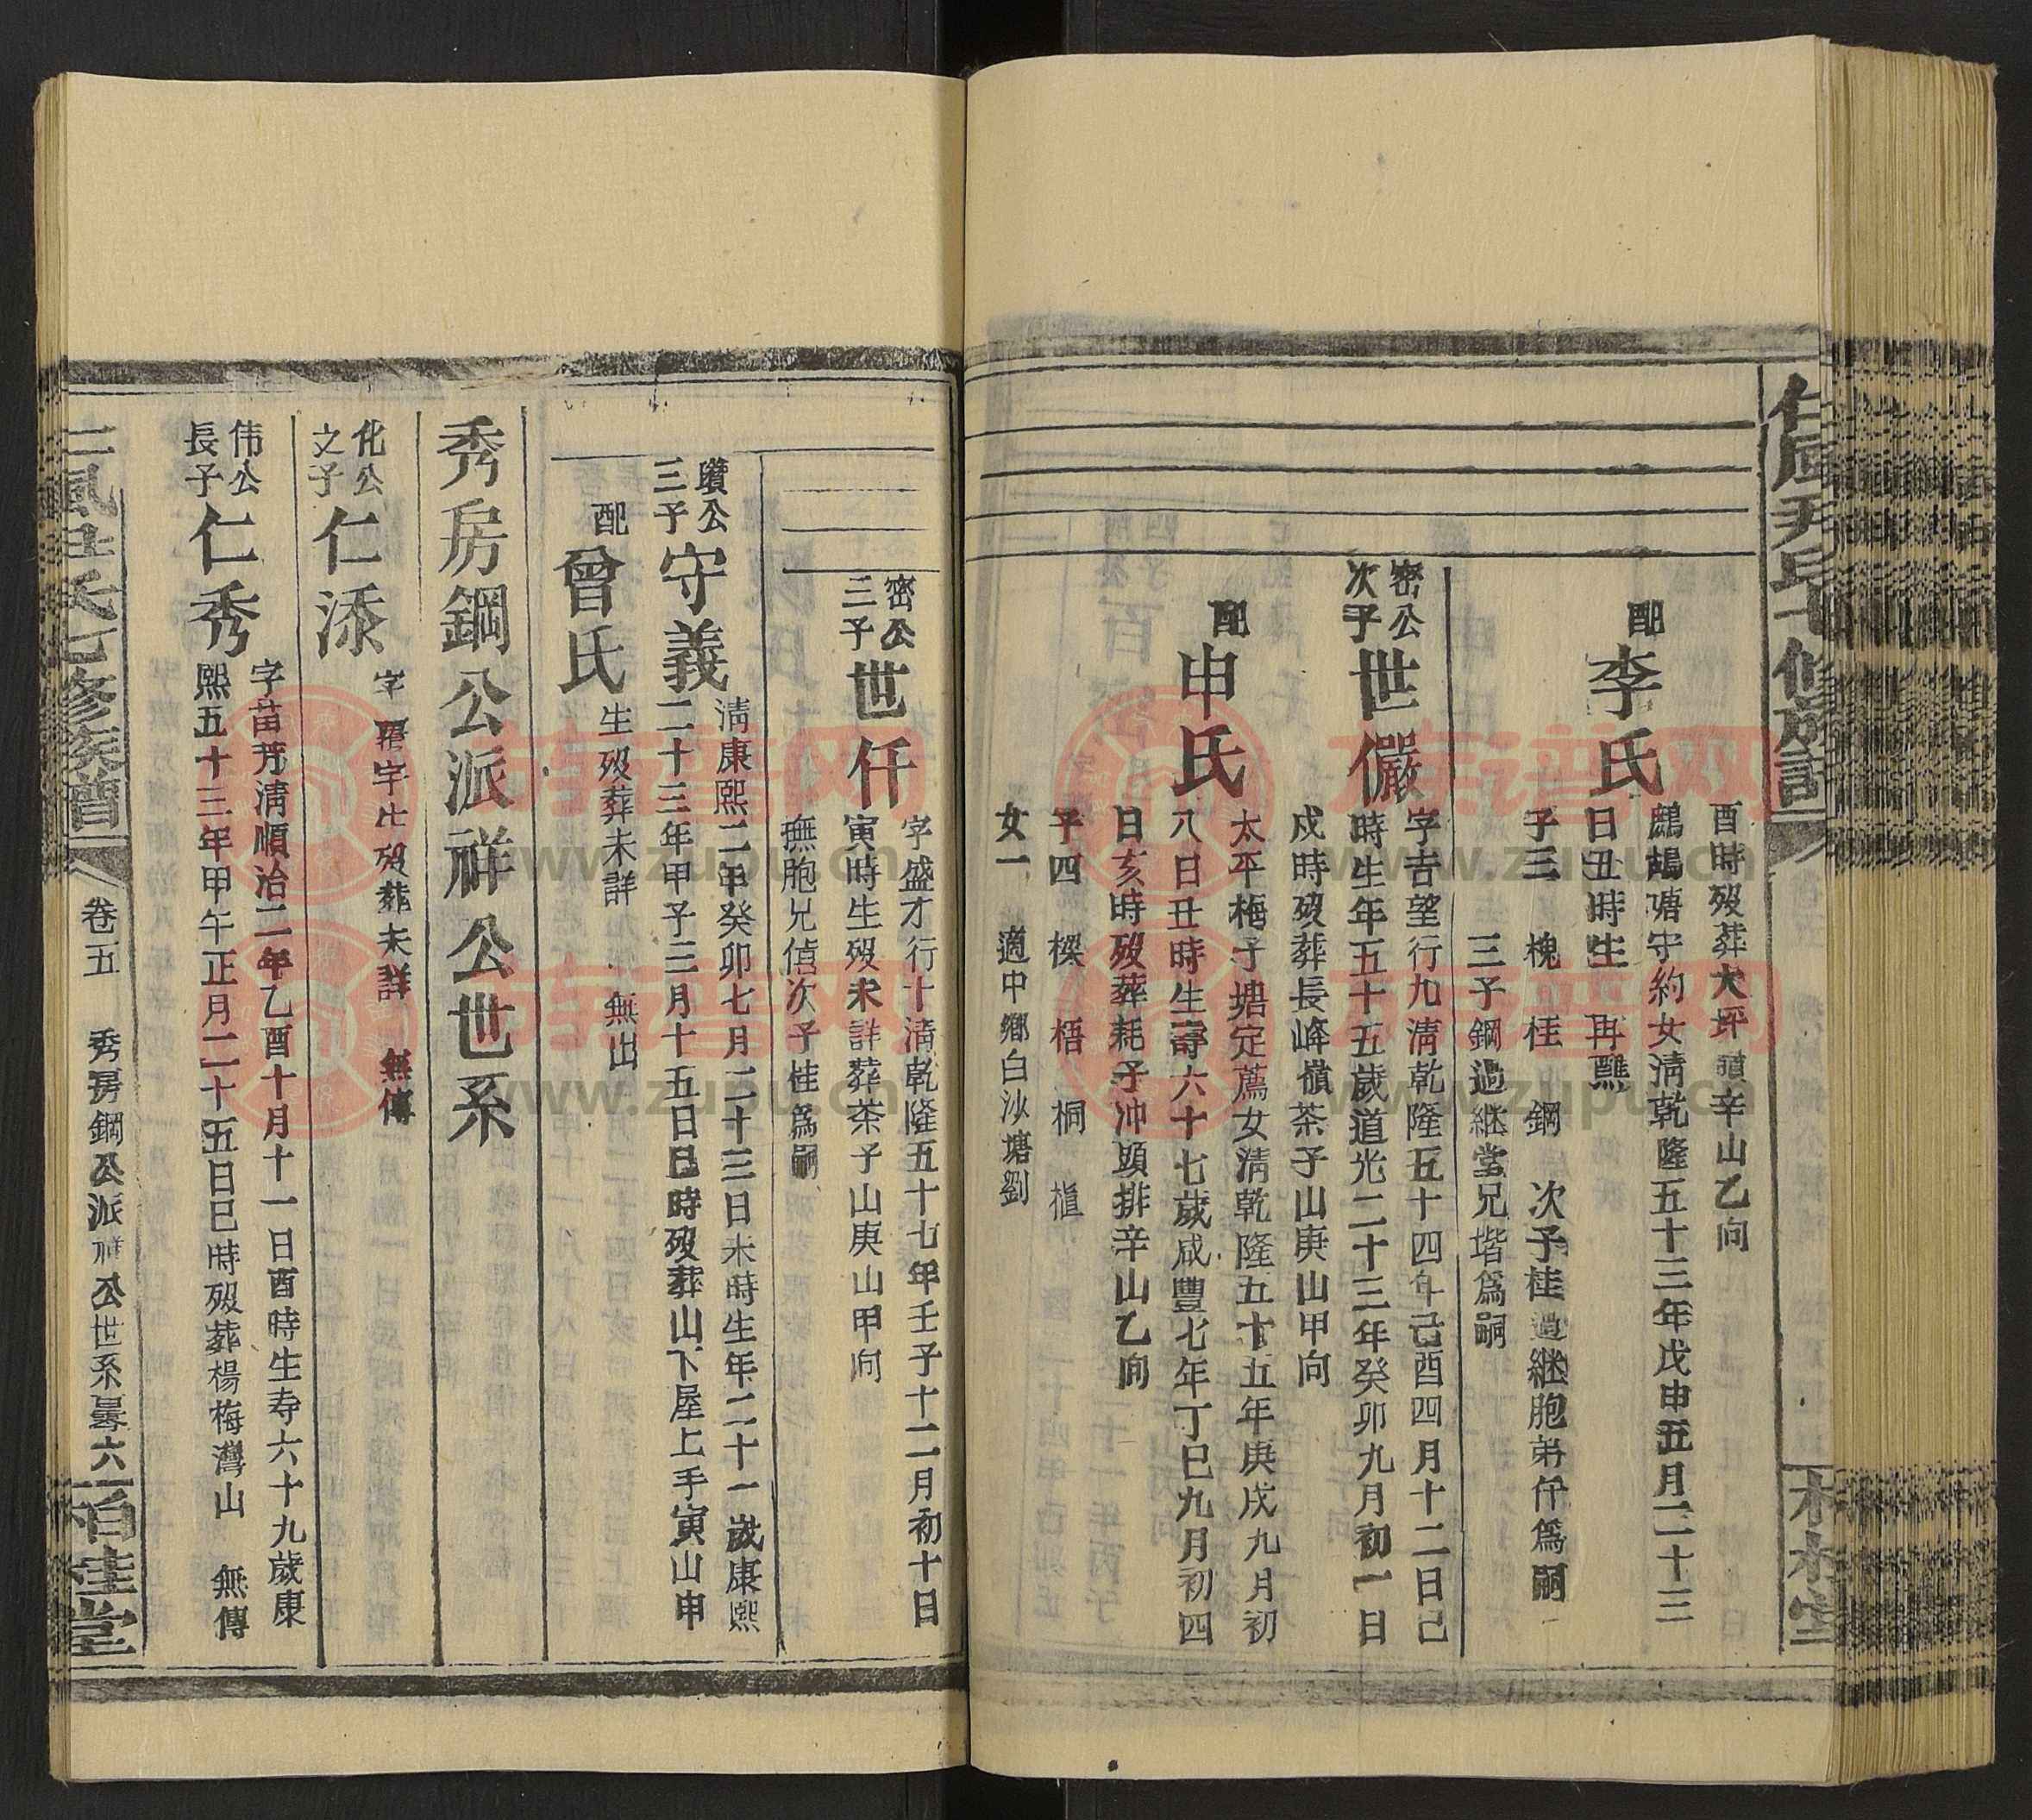 酉時歿葬大坪頭辛山乙向
配
李氏
鷓鴣塘守約女淸乾隆五十三年戊申五月二十三
日丑時生 再醮
子三 槐 桂 鋼 次子桂過継胞弟仟爲嗣
三子鋼過継堂兄堦爲嗣
密公
次子
世儼
字吉望行九淸乾隆五十四年己酉四月十二日己
時生年五十五歲道光二十三年癸卯九月初一日
戍時歿葬長峰嶺茶子山庚山甲向
配
申氏
太平梅子塘定薦女淸乾隆五十五年庚戌九月初
八日丑時生壽六十七歲咸豐七年丁巳九月初四
日亥時歿葬耗子冲頭排辛山乙向
子四 樑 梧 桐 樴
女一 適中鄉白沙塘劉
密公
三子
世仟
字盛才行十淸乾隆五十七年壬子十二月初十日
寅時生歿未詳葬茶子山庚山甲向
撫胞兄僖次子桂爲嗣
瓚公
三子
守義
淸康熙二甲癸卯七月二十三日未時生年二十一歲康熙
二十三年甲子三月十五日巳時歿葬山下屋上手寅山申
配
曾氏
生歿葬未詳 無出
秀房鋼公派祥公世系
化公
文子
仁添
字 歿葬未詳 無傳
伟公
長子
仁秀
字苗芳淸順治二年乙酉十月十一日酉時生寿六十九歲康
熙五十三年甲午正月二十五日巳時歿葬楊梅灣山 無傳
卷五 秀房鋼公派祥公世系 六
柏桂堂